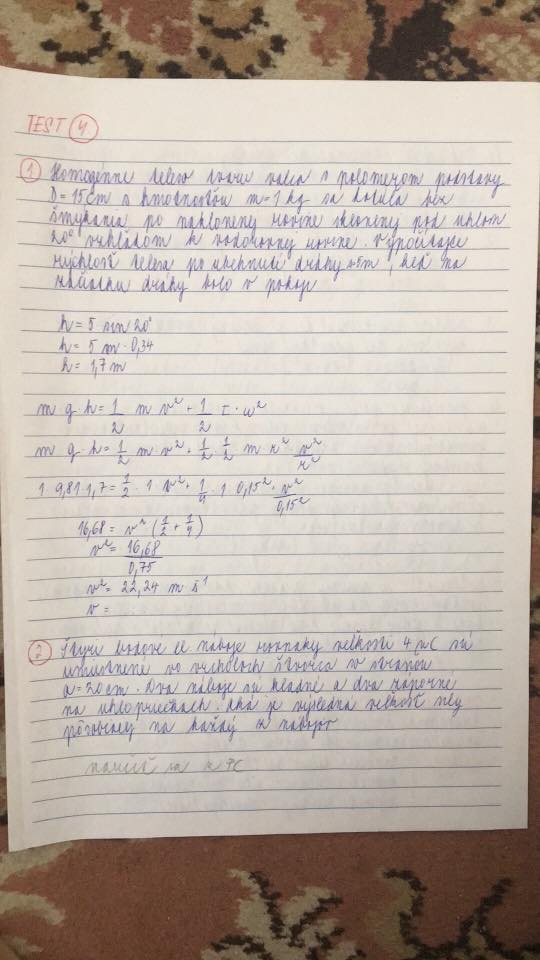 TEST 4.
1 Homogénne teleso tvaru valca s polomerom podstavy
D = 15cm s hmotnosťou m = 1 kg sa kotúľa bez
šmýkania po naklonenej rovine sklonenej pod uhlom
20° vzhľadom k vodorovnej rovine. Vypočítajte
rýchlosť telesa po ubehnutí dráhy 5m, keď na
začiatku dráhy bolo v pokoji
h = 5 sin 20°
h = 5 m · 0,34
h = 1,7 m
m g · h = 1/2 m v² + 1/2 I · ω²
m g h = 1/2 m · v² + 1/2 · 1/2 m r² v²/r²
1 · 9,81 · 1,7 = 1/2 · 1 · v² + 1/4 · 1 · 0,15² · v²/0,15²
16,68 = v² (1/2 + 1/4)
v² = 16,68/0,75
v² = 22,24 m s⁻¹
v =
2 Štyri bodové el. náboje rovnakej veľkosti 4 μC sú
umiestnené vo vrcholoch štvorca o stranou
a = 20 cm. Dva náboje sú kladné a dva záporné
na uhlopriečkach. Aká je výsledná veľkosť sily
pôsobiacej na každý z nábojov